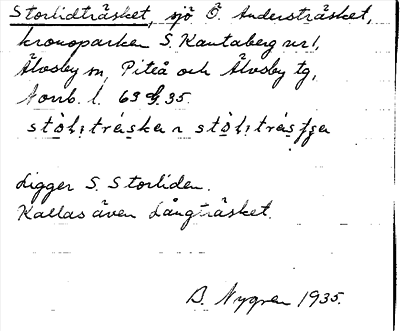 Storlidträsket, sjö Ö. Andersträsket,
kronoparken S. Kantaberg nr 1,
Älvsby sn, Piteå och Älvsby tg,
Norrb. l. 69 35.
Ligger S. Storliden.
Kallas även Långträsket.
D. Nygren 1935.